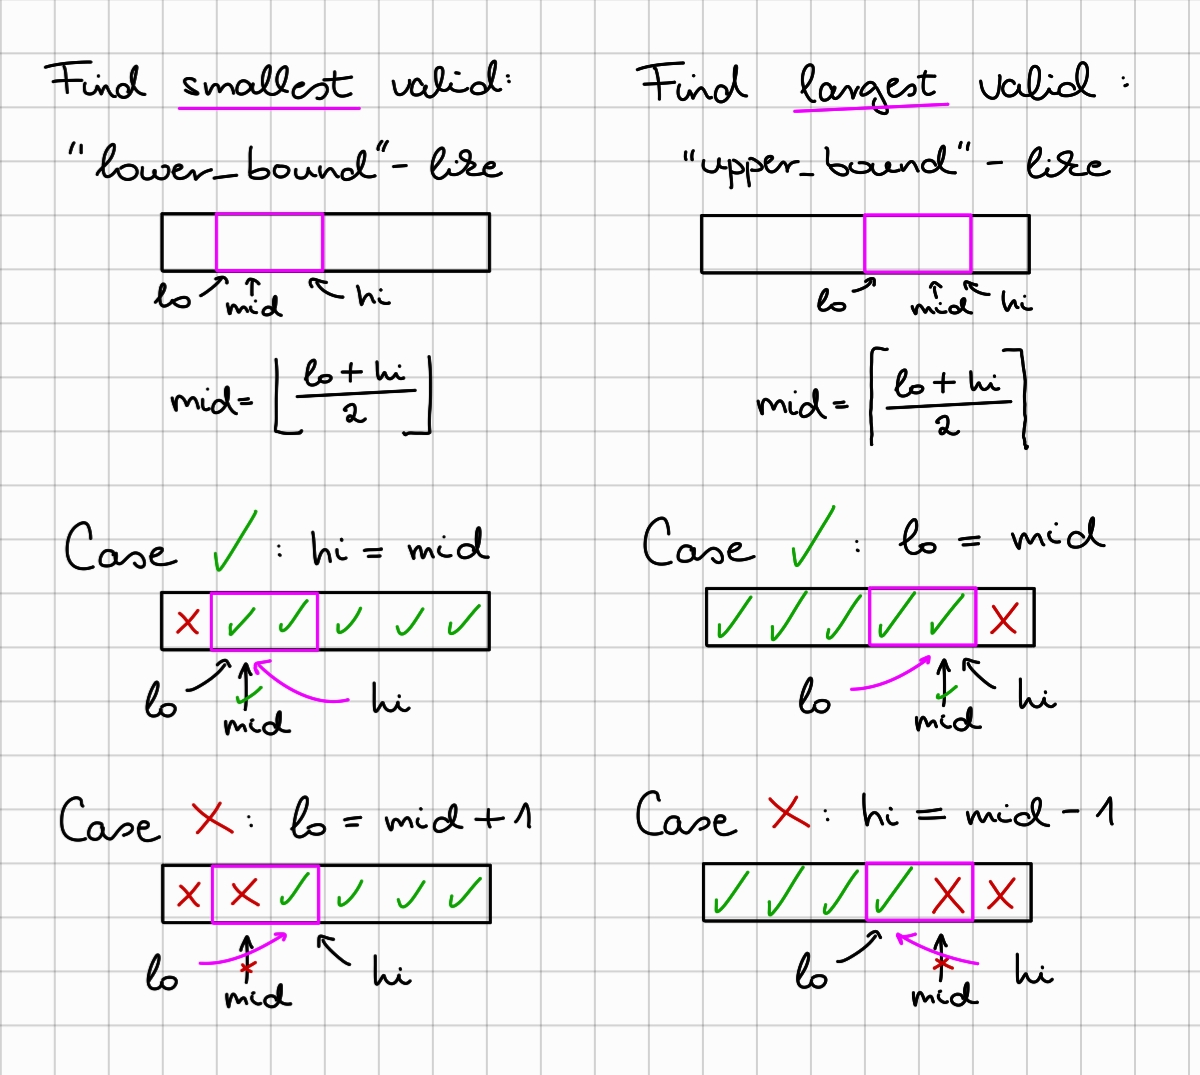 Find smallest valid:
"lower_bound"-like
lo mid hi
mid = ⌊(lo + hi)/2⌋
Case ✓: hi = mid
✗ ✓ ✓ ✓ ✓ ✓
lo mid ✓ hi
Case ✗: lo = mid + 1
✗ ✗ ✓ ✓ ✓ ✓
lo mid ✗ hi
Find largest valid:
"upper_bound"-like
lo mid hi
mid = ⌈(lo + hi)/2⌉
Case ✓: lo = mid
✓ ✓ ✓ ✓ ✓ ✗
lo mid ✓ hi
Case ✗: hi = mid - 1
✓ ✓ ✓ ✓ ✗ ✗
lo mid ✗ hi